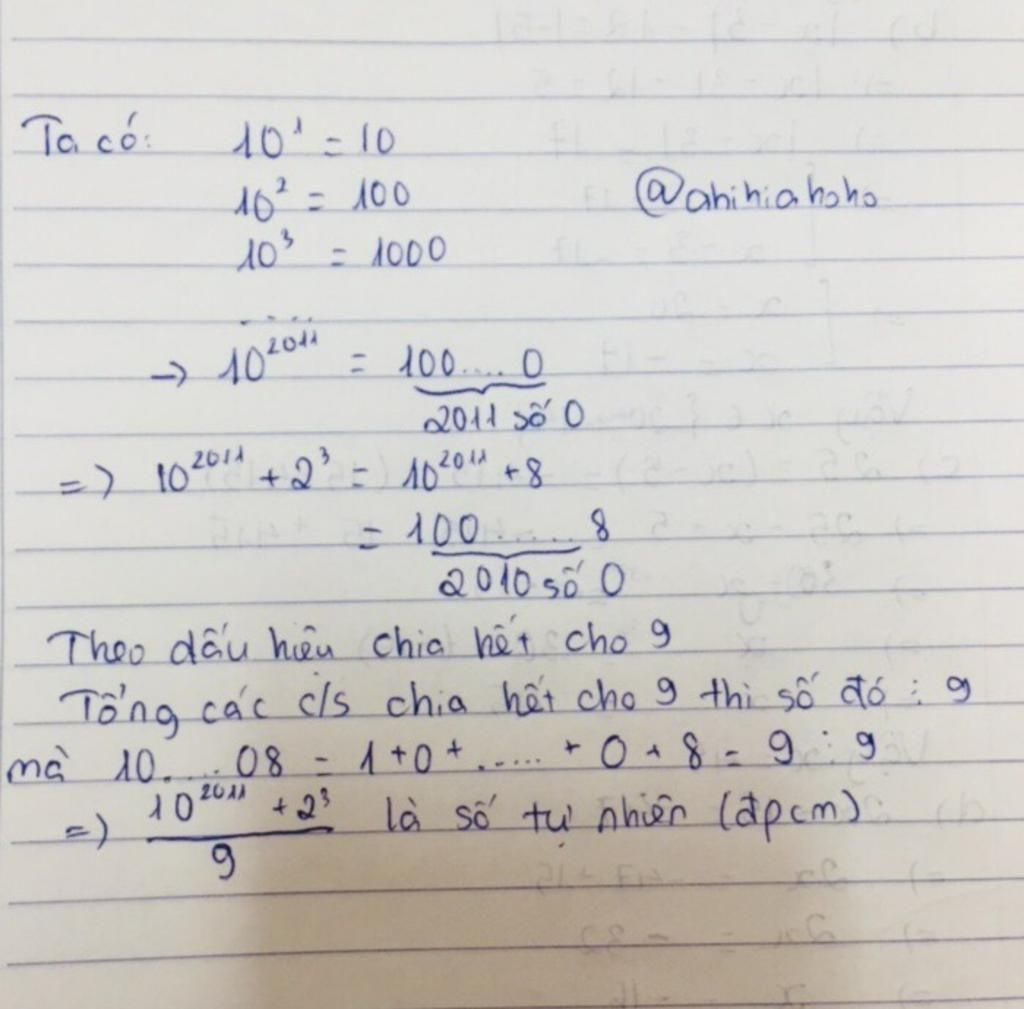 Ta có: 10¹ = 10
10² = 100 @ahihiahoho
10³ = 1000
.....
→ 10²⁰¹¹ = 100....0
2011 số 0
=> 10²⁰¹¹ + 2³ = 10²⁰¹¹ + 8
= 100......8
2010 số 0
Theo dấu hiệu chia hết cho 9
Tổng các c/s chia hết cho 9 thì số đó ⋮ 9
mà 10....08 = 1+0+.....+0+8 = 9 ⋮ 9
=> (10²⁰¹¹ + 2³)/9 là số tự nhiên (đpcm)